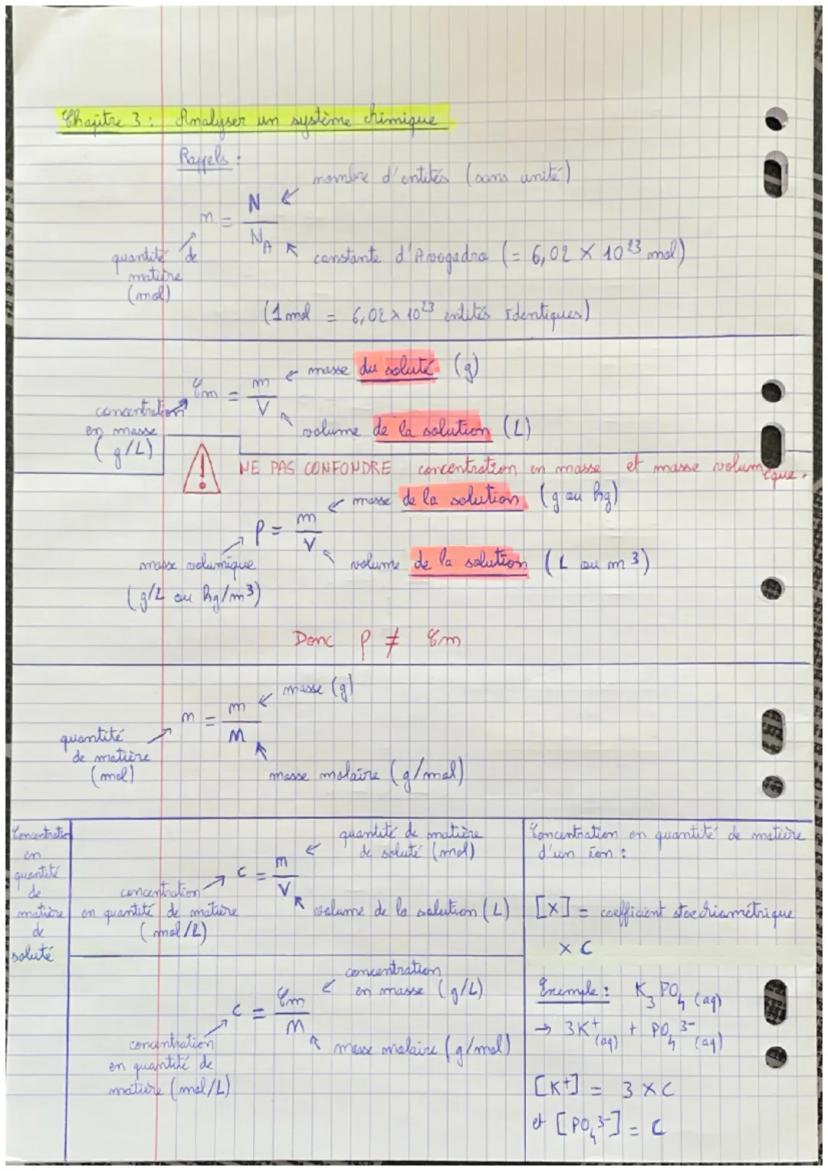 Chapitre 3 : Analyser un système chimique
Rappels :
nombre d'entités (sans unité)
n = N / NA
constante d'Avogadro (= 6,02 × 10²³ mol)
quantité de
matière
(mol)
(1 mol = 6,02 × 10²³ entités Identiques)
masse du soluté (g)
Cm = m / V
concentration
en masse
(g/L)
volume de la solution (L)
NE PAS CONFONDRE concentration en masse et masse volumique.
masse de la solution (g ou kg)
ρ = m / V
masse volumique
(g/L ou kg/m³)
volume de la solution (L ou m³)
Donc ρ ≠ Cm
masse (g)
n = m / M
quantité
de matière
(mol)
masse molaire (g/mol)
Concentration
en
quantité
de
matière
de
soluté
quantité de matière
de soluté (mol)
c = n / V
concentration
en quantité de matière
(mol/L)
volume de la solution (L)
concentration
en masse (g/L)
c = Cm / M
concentration
en quantité de
matière (mol/L)
masse molaire (g/mol)
Concentration en quantité de matière
d'un ion :
[X] = coefficient stoechiométrique
× C
Exemple : K₃PO₄ (aq)
→ 3K⁺(aq) + PO₄³⁻(aq)
[K⁺] = 3 × C
et [PO₄³⁻] = C